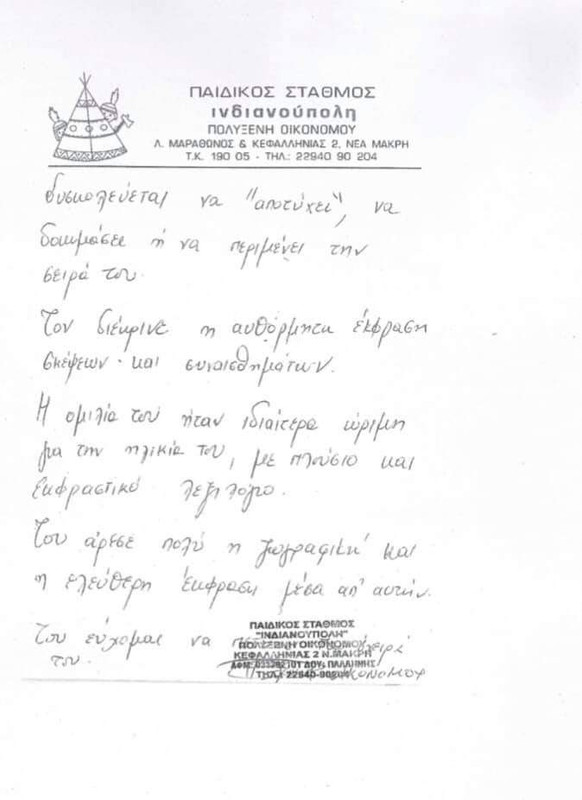 ΠΑΙΔΙΚΟΣ ΣΤΑΘΜΟΣ
ινδιανούπολη
ΠΟΛΥΞΕΝΗ ΟΙΚΟΝΟΜΟΥ
Λ. ΜΑΡΑΘΩΝΟΣ & ΚΕΦΑΛΛΗΝΙΑΣ 2, ΝΕΑ ΜΑΚΡΗ
Τ.Κ. 190 05 - ΤΗΛ.: 22940 90 204
δυσκολεύεται να "αποτύχει", να
δοκιμάσει ή να περιμένει την
σειρά του.
Τον διέκρινε η αυθόρμητη έκφραση
σκέψεων και συναισθημάτων.
Η ομιλία του ήταν ιδιαίτερα ώριμη
για την ηλικία του, με πλούσιο και
εκφραστικό λεξιλόγιο.
Του άρεσε πολύ η ζωγραφική και
η ελεύθερη έκφραση μέσα απ' αυτήν.
Του εύχομαι να
του.
ΠΑΙΔΙΚΟΣ ΣΤΑΘΜΟΣ
"ΙΝΔΙΑΝΟΥΠΟΛΗ"
ΠΟΛΥΞΕΝΗ ΟΙΚΟΝΟΜΟΥ
ΚΕΦΑΛΛΗΝΙΑΣ 2 Ν.ΜΑΚΡΗ
ΔΟΥ: ΠΑΛΛΗΝΗΣ
ΤΗΛ.: 22940-90204